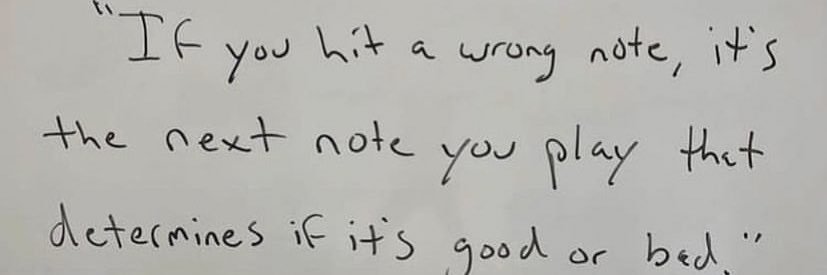 "If you hit a wrong note, it's
the next note you play that
determines if it's good or bad."